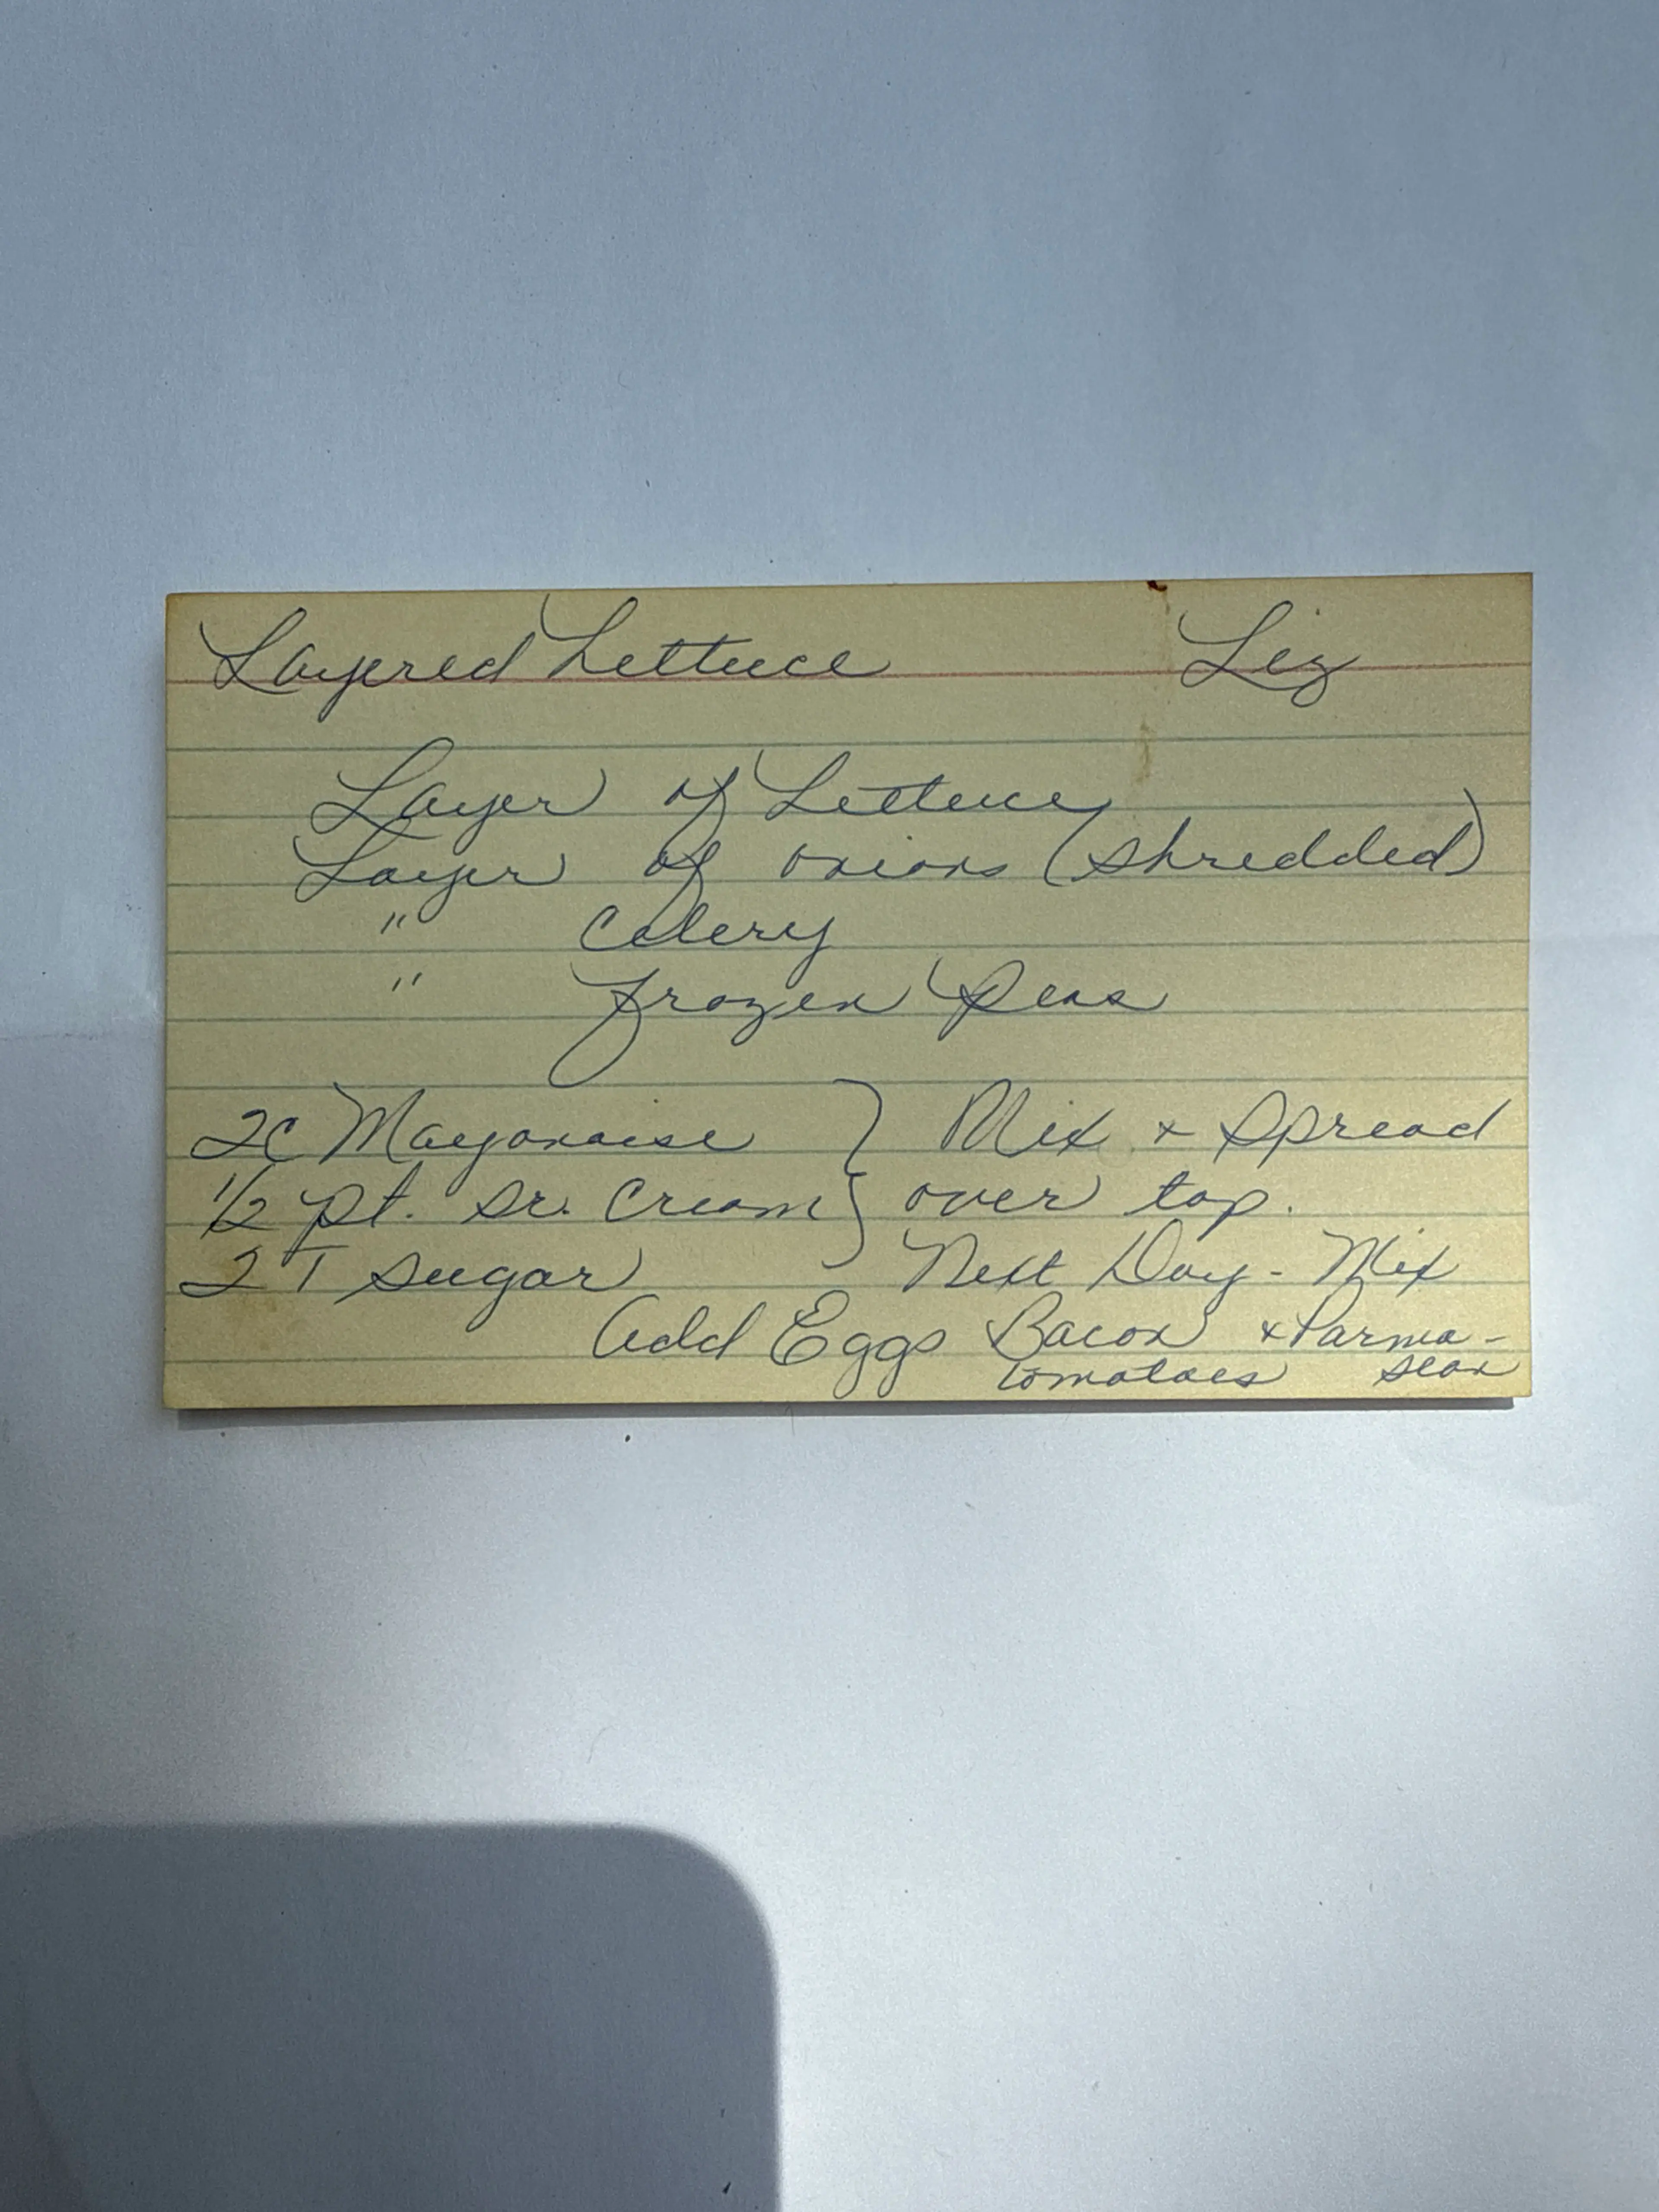 Layered Lettuce Liz
Layer of Lettuce
Layer of onions (shredded)
" Celery
" frozen Peas
2c Mayonaise } Mix + Spread
1/2 pt. sr. Cream } over top.
2 T sugar Next Day - Mix
Add Eggs Bacon + Parma-
tomatoes sean